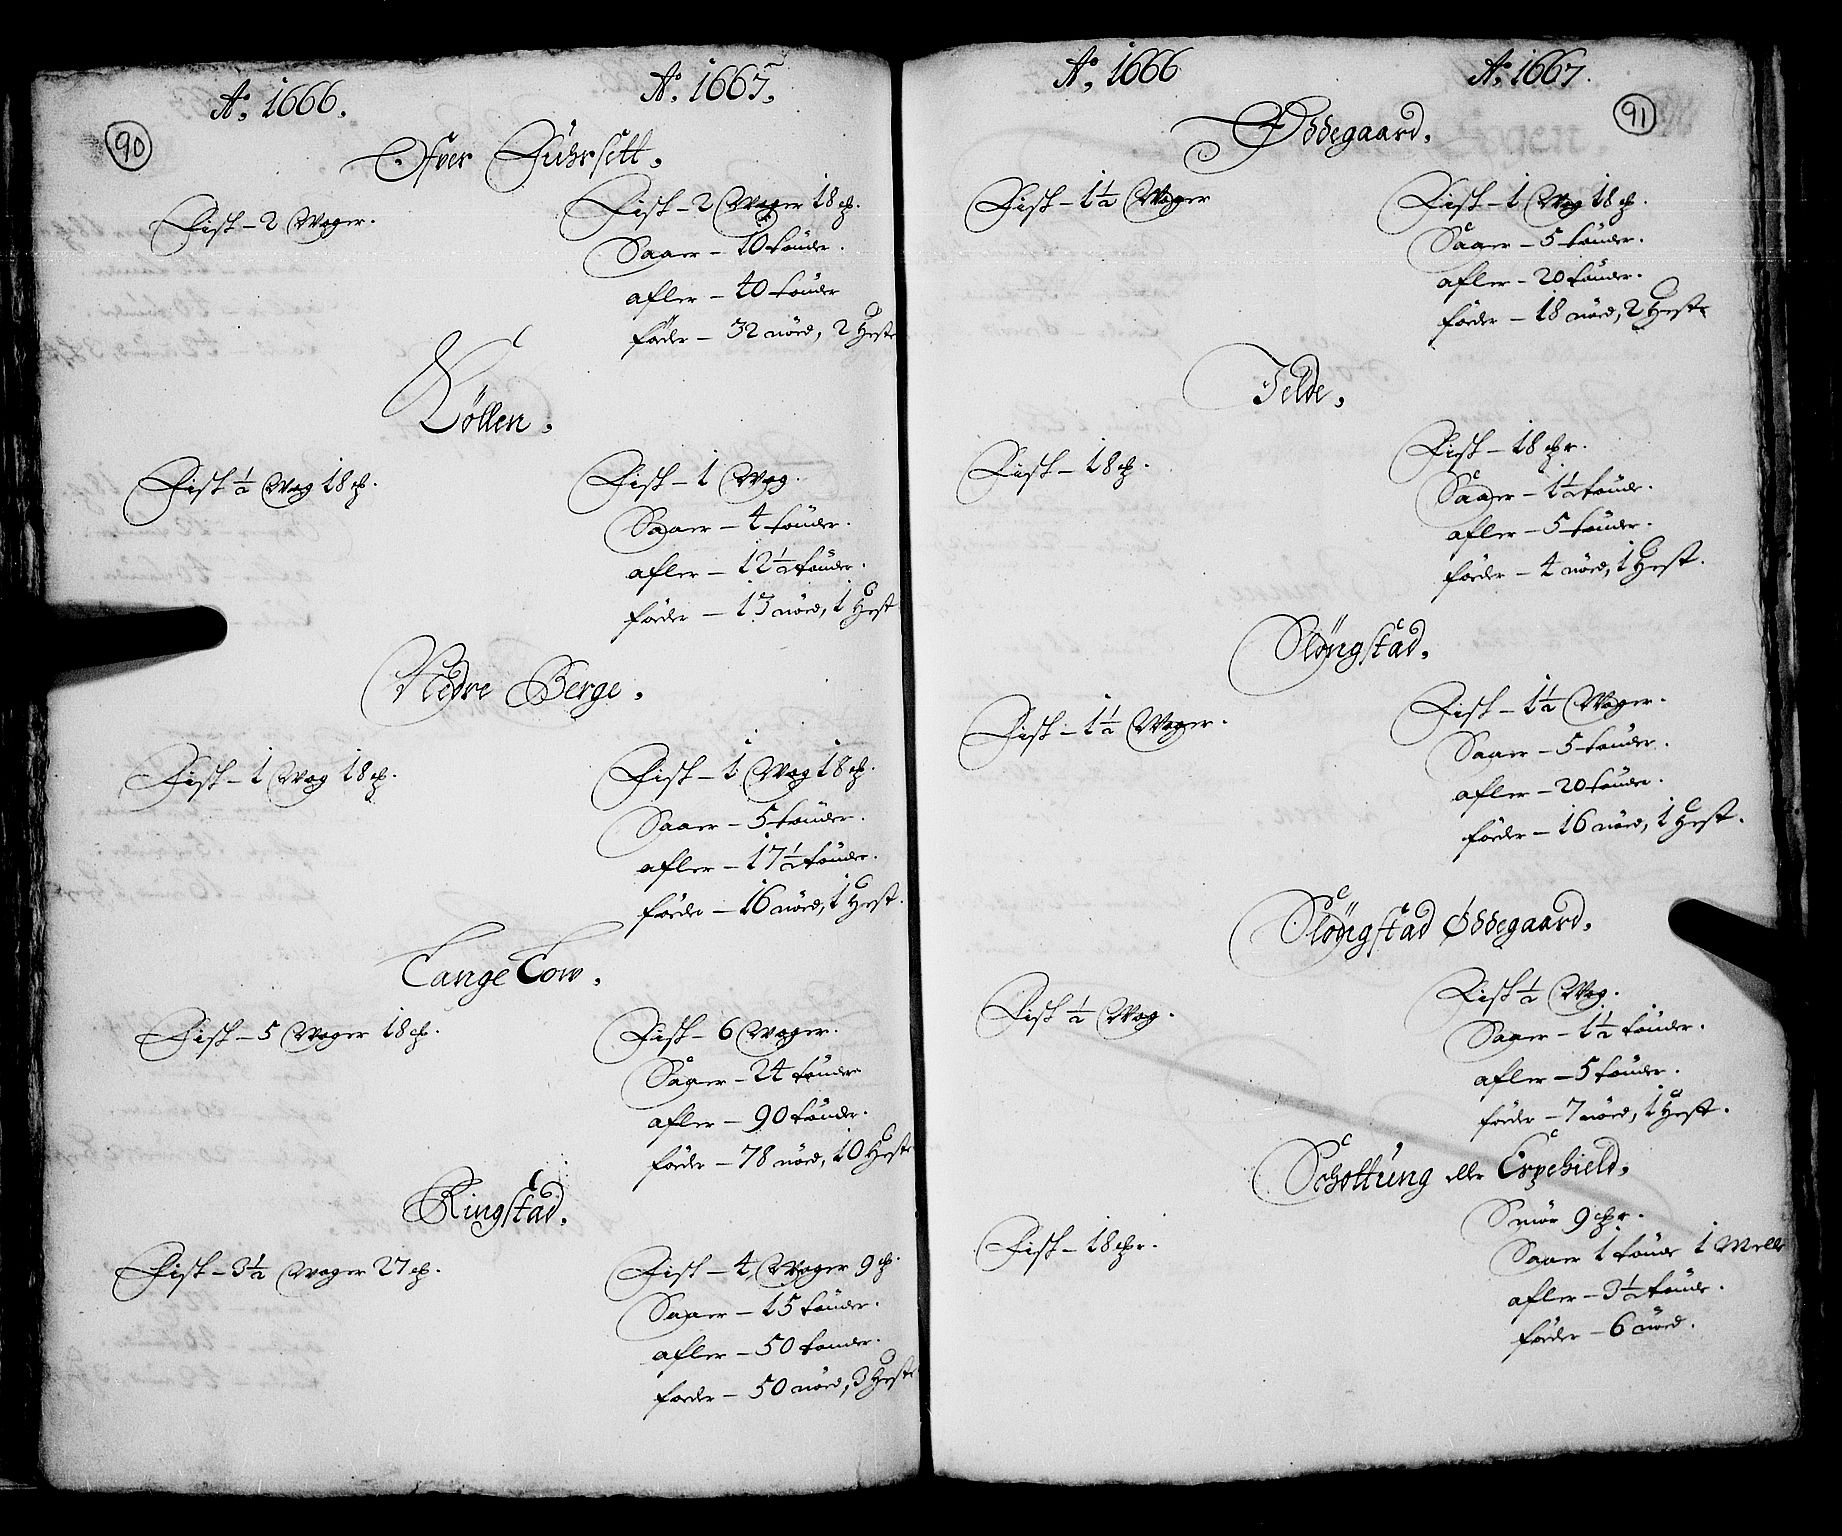 90
Aº. 1666.
Aº. 1667.
Øfver Fuhrsett.
Fisk – 2 Woger.
Fisk – 2 Woger 18 ℔.
Saaer – 10 tönder.
afler – 40 tönder
föder – 32 nöed, 2 Heste
Köllen.
Fisk ½ Wog 18 ℔.
Fisk – 1 Wog.
Saaer – 4 tönder.
afler – 12½ tönder.
föder – 13 nöed, 1 Hest
Nedre Berge.
Fisk – 1 Wog 18 ℔.
Fisk – 1 Wog 18 ℔.
Saaer – 5 tönder.
afler – 17½ tönder.
föder – 16 nöed, 1 Hest.
Tange Tow.
Fisk – 5 Woger 18 ℔.
Fisk – 6 Woger.
Saaer – 24 tönder
afler – 90 tönder.
föder – 78 nöed, 10 Heste
Ringstad.
Fisk – 3½ Woger 27 ℔.
Fisk – 4 Woger 9 ℔.
Saaer – 15 tönder.
afler – 50 tönder.
foder – 50 nöed, 3 Heste
91
Aº. 1666
Aº. 1667.
Øddegaard.
Fisk – 1½ Woger
Fisk – 1 Wog 18 ℔.
Saaer – 5 tönder.
afler – 20 tönder.
föder – 18 nöed, 2 Heste
Telde.
Fisk – 18 ℔.
Fisk – 18 ℔r.
Saaer – 1½ tönde.
afler – 5 tönder.
föder – 4 nöed, 1 Hest.
Slöngstad.
Fisk – 1½ Woger.
Fisk – 1½ Woger.
Saaer – 5 tönder.
afler – 20 tönder.
föder – 16 nöed, 1 Hest.
Slöngstad Øddegaard.
Fisk ½ Wog.
Fisk ½ Wog.
Saaer – 1½ tönder.
afler – 5 tönder.
föder – 7 nöed, 1 Hest.
Schottung eller Erpehield.
Fisk – 18 ℔r.
Smör 9 ℔r.
Saaer 1 tönde 1 Melle
afler – 3½ tönde.
föder – 6 nöed.